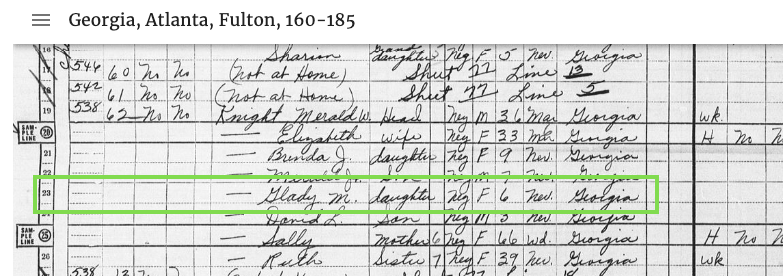 Georgia, Atlanta, Fulton, 160-185
16 Sharion Grand daughter 5 Neg F 5 Nev. Georgia
17 546 60 No No (Not at Home) Sheet 77 Line 13
18 542 61 No No (Not at Home) Sheet 77 Line 5
19 538 62 No No Knight Merald W. Head Neg M 36 Mar Georgia wk.
SAMPLE LINE 20 — Elizabeth wife Neg F 33 Mar Georgia H No No
21 — Brenda J. daughter Neg F 9 Nev. Georgia
22 — Jr. Son Neg M 7 Nev. Georgia
23 — Glady M. daughter Neg F 6 Nev. Georgia
— David L. Son Neg M 3 Nev. Georgia
SAMPLE LINE 25 — Sally Mother 6 Neg F 66 Wd. Georgia H No No
26 — Ruth Sister 7 Neg F 39 Nev. Georgia wk
538